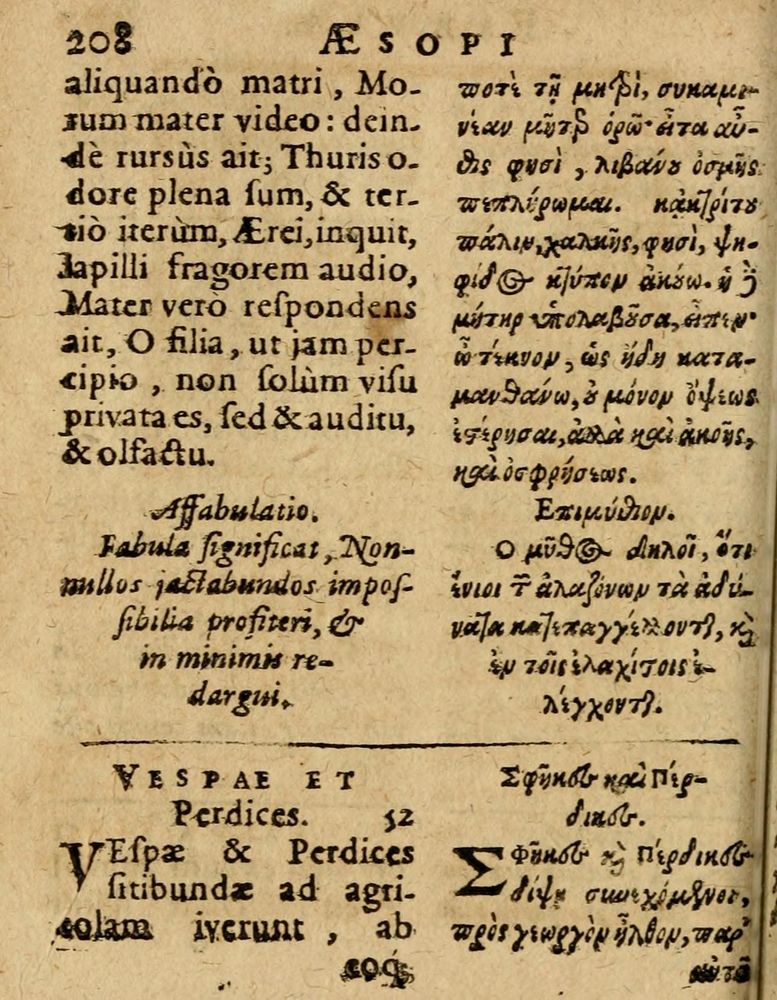 208 ÆSOPI
aliquandò matri, Mo-
rum mater video: dein-
dè rursùs ait; Thuris o-
dore plena sum, & ter-
tiò iterùm, Ærei, inquit,
lapilli fragorem audio,
Mater verò respondens
ait, O filia, ut jam per-
cipio, non solùm visu
privata es, sed & auditu,
& olfactu.
Affabulatio.
Fabula significat, Non-
nullos jactabundos impos-
sibilia profiteri, &
in minimis re-
dargui.
VESPAE ET
Perdices. 52
VEspæ & Perdices
sitibundæ ad agri-
colam iverunt, ab
ποτὲ τῇ μητρὶ, συκαμι-
νίαν μῆτερ ὁρῶ· εἶτα αὖ-
θις φησὶ, λιβάνου ὀσμῆς
πεπλήρωμαι. κἀκ τρίτου
πάλιν, χαλκῆς, φησὶ, ψη-
φίδος κτύπον ἀκούω. ἡ δὲ
μήτηρ ὑπολαβοῦσα, εἶπεν·
ὦ τέκνον, ὡς ἤδη κατα-
μανθάνω, οὐ μόνον ὄψεως
ἐστέρησαι, ἀλλὰ καὶ ἀκοῆς,
καὶ ὀσφρήσεως.
Ἐπιμύθιον.
Ο μῦθος δηλοῖ, ὅτι
ἔνιοι τῶν ἀλαζόνων τὰ ἀδύ-
νατα κατεπαγγέλλονται, καὶ
ἐν τοῖς ἐλαχίστοις ἐ-
λέγχονται.
Σφῆκες καὶ Πέρ-
δικες.
ΣΦῆκες καὶ Πέρδικες
δίψῃ συνεχόμενοι,
πρὸς γεωργὸν ἦλθον, παρ'
αὐτοῦ